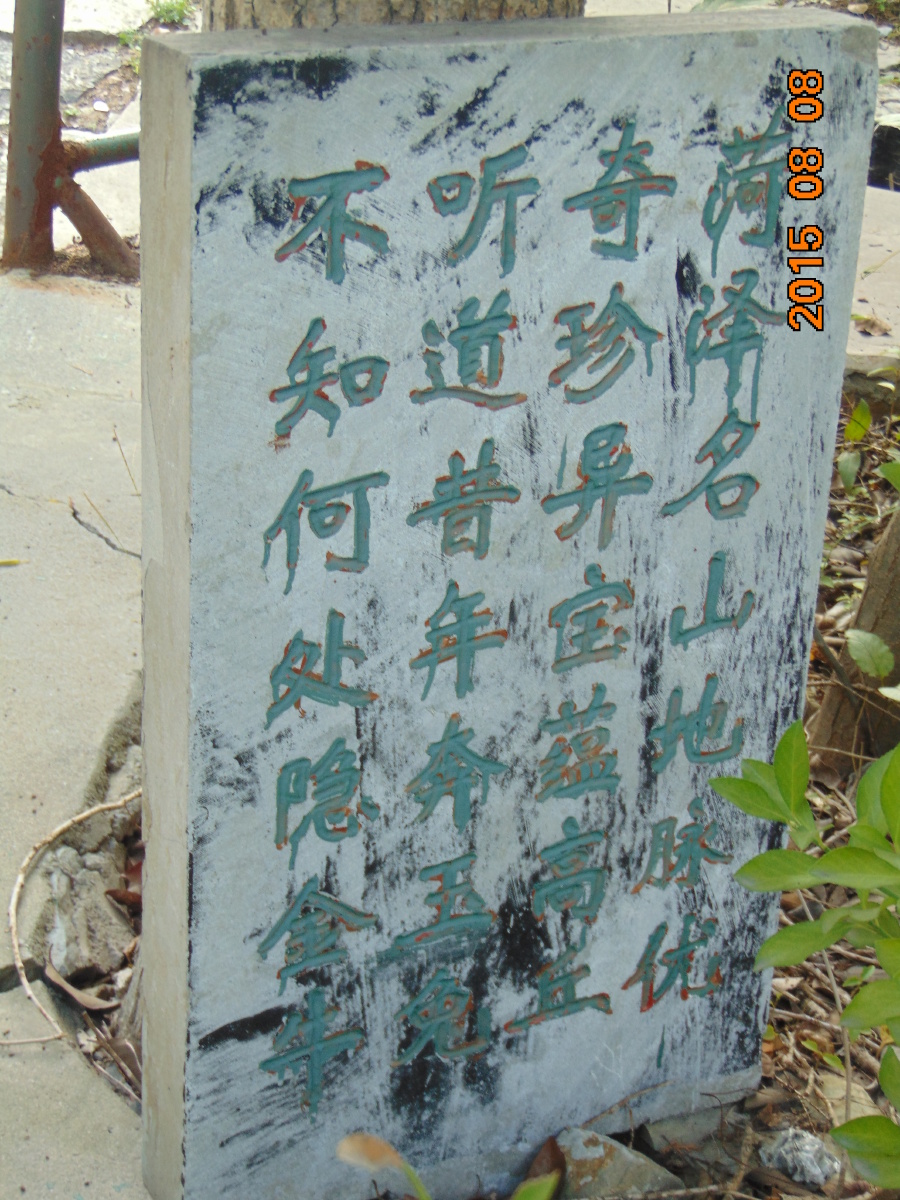 菏泽名山地脉优
奇珍异宝蕴高丘
听道昔年奔玉兔
不知何处隐金牛
2015 08 08